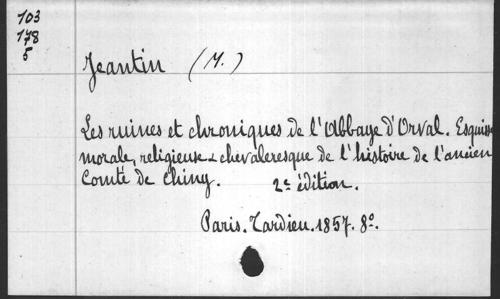 103
178
5
Jeantin (M.)
Les ruines et chroniques de l'Abbaye d'Orval. Esquisse
morale, religieuse & chevaleresque de l'histoire de l'ancien
Comté de Chiny. 2e édition.
Paris. Tardieu. 1857. 8º.